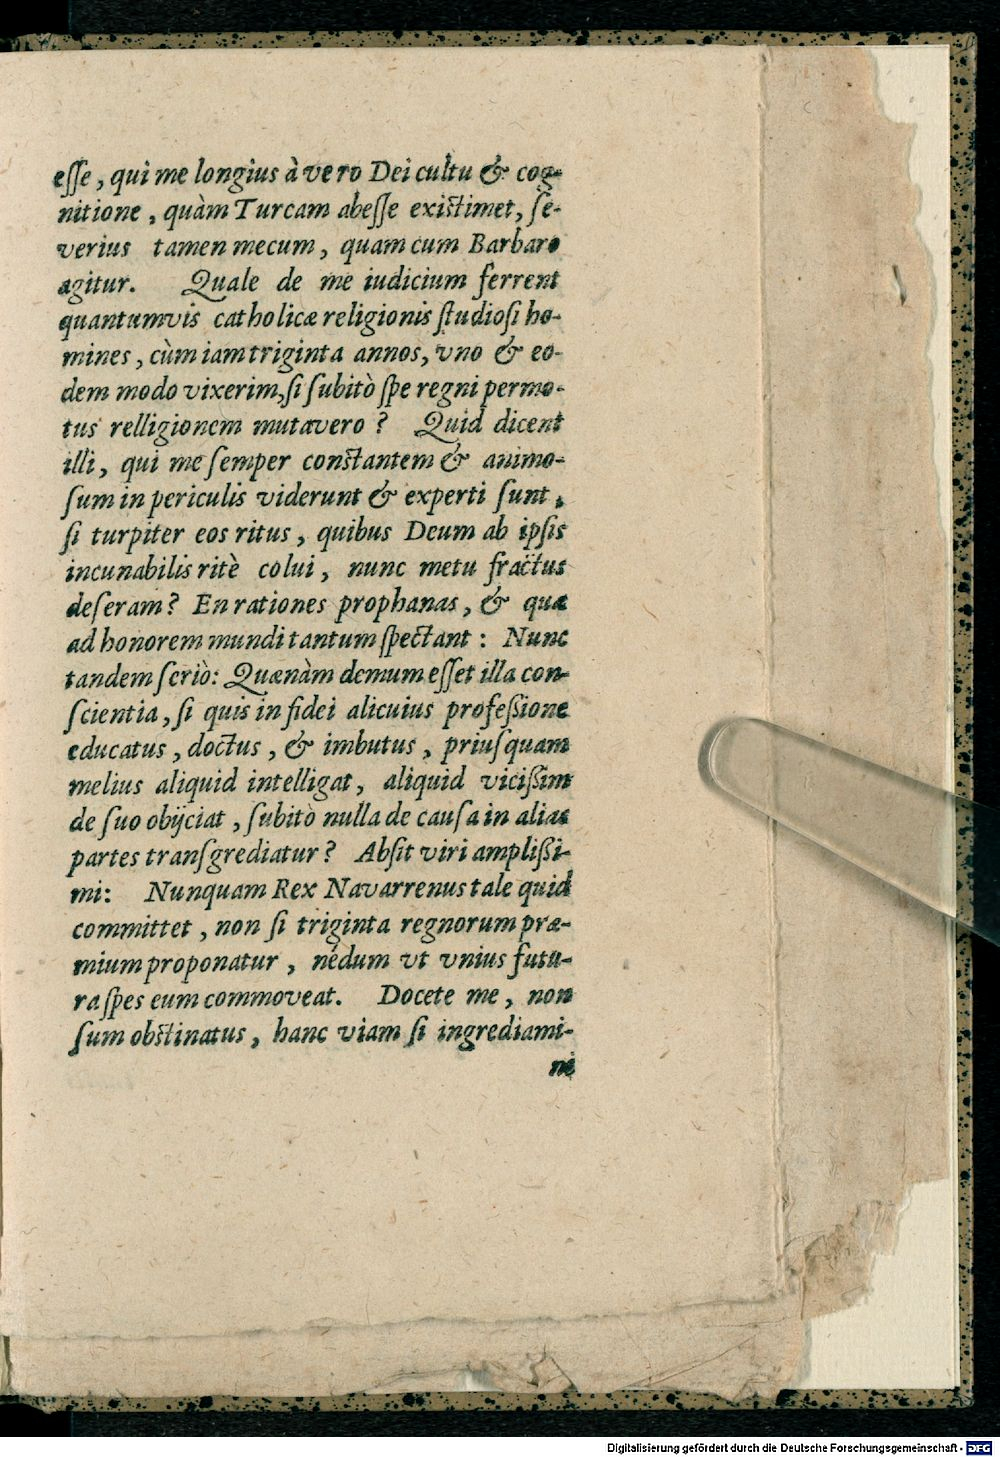 esse, qui me longius à vero Dei cultu & cog-
nitione, quàm Turcam abesse existimet, se-
verius tamen mecum, quam cum Barbaro
agitur. Quale de me iudicium ferrent
quantumvis catholicæ religionis studiosi ho-
mines, cùm iam triginta annos, vno & eo-
dem modo vixerim, si subitò spe regni permo-
tus relligionem mutavero? Quid dicent
illi, qui me semper constantem & animo-
sum in periculis viderunt & experti sunt,
si turpiter eos ritus, quibus Deum ab ipsis
incunabilis ritè colui, nunc metu fractus
deseram? En rationes prophanas, & quæ
ad honorem mundi tantum spectant: Nunc
tandem seriò: Quænàm demum esset illa con-
scientia, si quis in fidei alicuius professione
educatus, doctus, & imbutus, priusquam
melius aliquid intelligat, aliquid vicissim
de suo obijciat, subitò nulla de causa in alias
partes transgrediatur? Absit viri amplissi-
mi: Nunquam Rex Navarrenus tale quid
committet, non si triginta regnorum præ-
mium proponatur, nédum vt vnius futu-
ra spes eum commoveat. Docete me, non
sum obstinatus, hanc viam si ingrediami-
ni
Digitalisierung gefördert durch die Deutsche Forschungsgemeinschaft - DFG